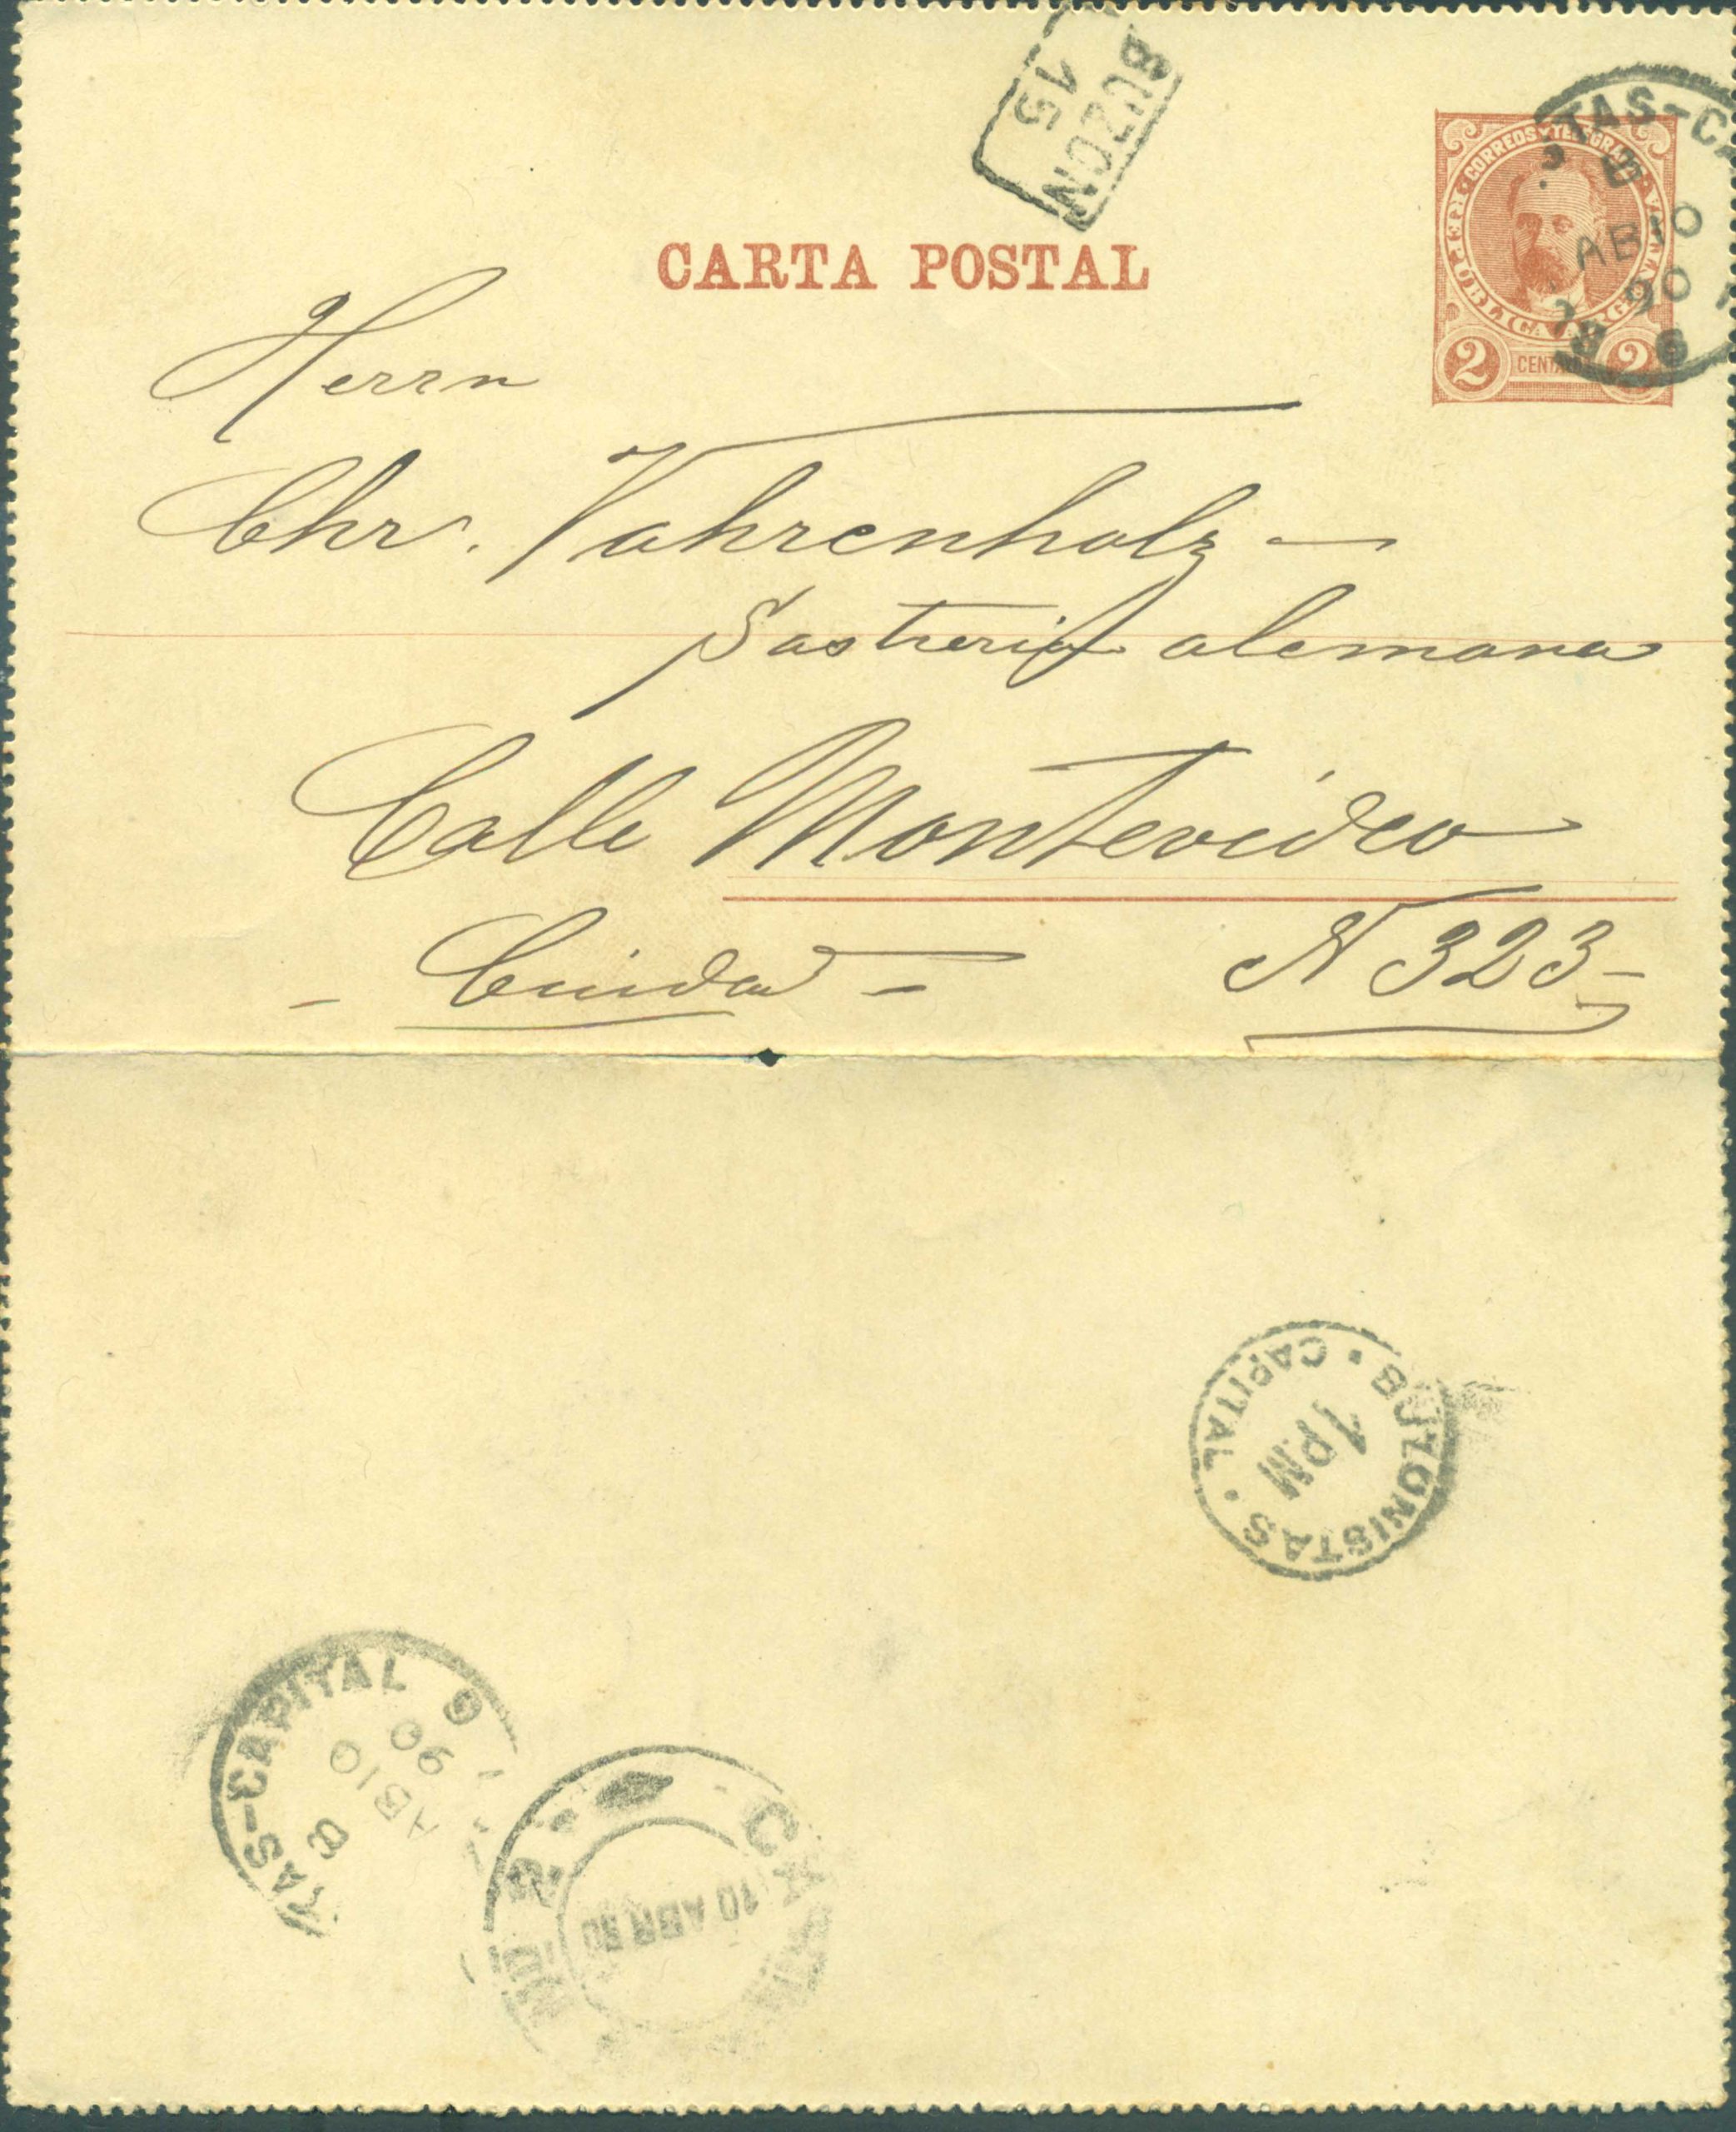 BUZON
15
CORREOS Y TELEGRAFOS
REPUBLICA ARGENTINA
2 CENTAVOS 2
TAS-CA
AB 10
90
6
CARTA POSTAL
Herrn
Chr. Vahrenholz
Sastreria alemana
Calle Montevideo
Ciudad
N 323
BUZONISTAS · CAPITAL ·
1 PM
TAS-CAPITAL
8
AB 10
90
10 ABR 90